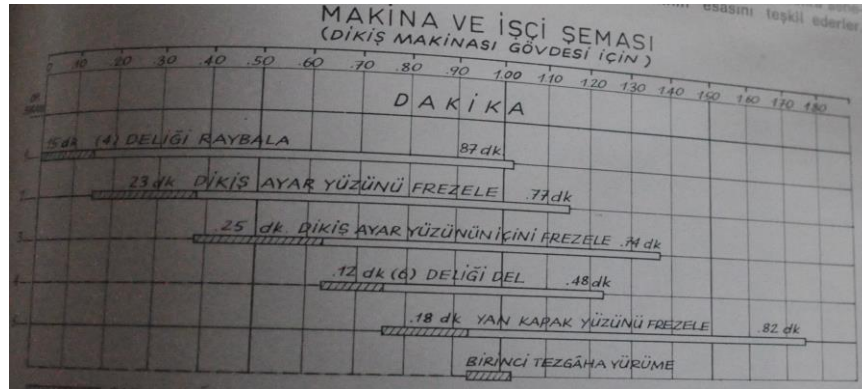 esasını teşkil ederler
MAKİNA VE İŞÇİ ŞEMASI
(DİKİŞ MAKİNASI GÖVDESİ İÇİN)
0 .10 .20 .30 .40 .50 .60 .70 .80 .90 1.00 1.10 1.20 1.30 1.40 1.50 1.60 1.70 1.80
DAKİKA
1 15 dk (4) DELİĞİ RAYBALA 87 dk
2 .23 dk DİKİŞ AYAR YÜZÜNÜ FREZELE .77 dk
3 .25 dk DİKİŞ AYAR YÜZÜNÜN İÇİNİ FREZELE .74 dk
4 .12 dk (6) DELİĞİ DEL .48 dk
5 .18 dk YAN KAPAK YÜZÜNÜ FREZELE .82 dk
BİRİNCİ TEZGÂHA YÜRÜME